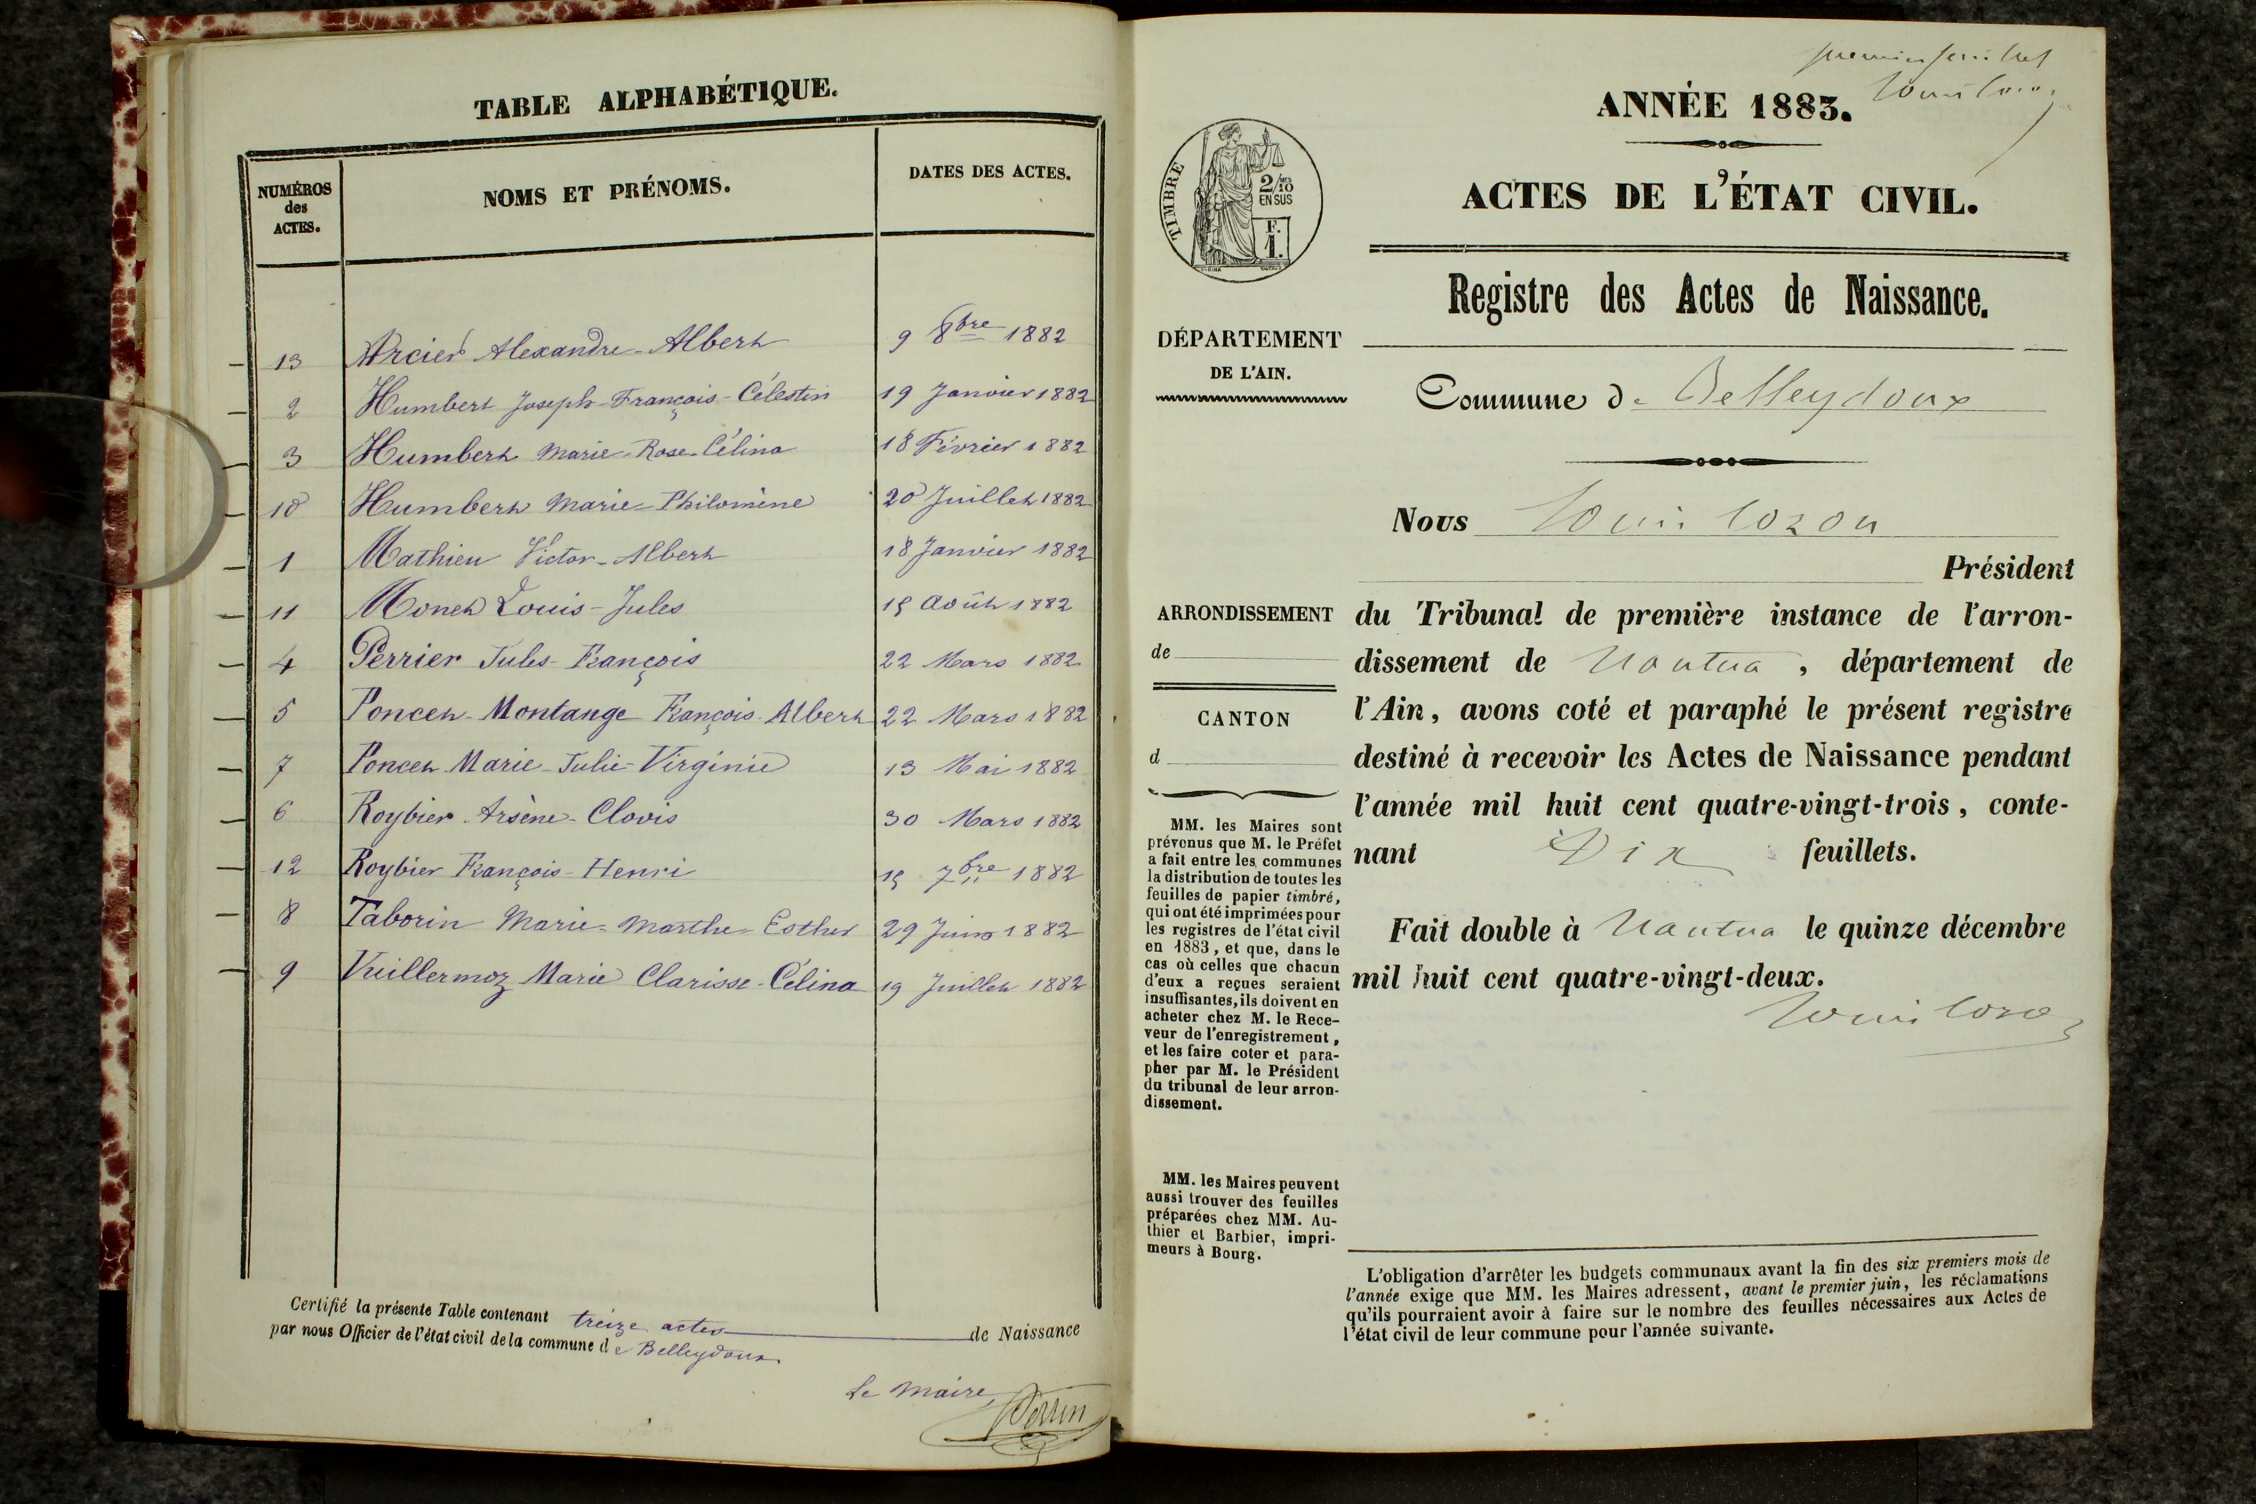 TABLE ALPHABÉTIQUE.
NUMÉROS des ACTES.
NOMS ET PRÉNOMS.
DATES DES ACTES.
13 Arcier Alexandre-Albert 9 8bre 1882
2 Humbert Joseph-François-Célestin 19 Janvier 1882
3 Humbert Marie-Rose-Célina 18 Février 1882
10 Humbert Marie-Philomène 20 Juillet 1882
1 Mathieu Victor-Albert 18 Janvier 1882
11 Monet Louis-Jules 15 Août 1882
4 Perrier Jules-François 22 Mars 1882
5 Poncet-Montange François-Albert 22 Mars 1882
7 Poncet Marie-Julie-Virginie 13 Mai 1882
6 Roybier Arsène-Clovis 30 Mars 1882
12 Roybier François-Henri 15 7bre 1882
8 Taborin Marie-Marthe-Esther 29 Juin 1882
9 Vuillermoz Marie Clarisse-Célina 19 Juillet 1882
Certifié la présente Table contenant treize actes de Naissance
par nous Officier de l'état civil de la commune de Belleydoux
Le Maire
Perrin
premier feuillet
ANNÉE 1883.
ACTES DE L'ÉTAT CIVIL.
TIMBRE
2/10
EN SUS
F.
1.
Registre des Actes de Naissance.
DÉPARTEMENT
DE L'AIN.
Commune de Belleydoux
Nous
Président
ARRONDISSEMENT
de
CANTON
d
du Tribunal de première instance de l'arron-
dissement de Nantua, département de
l'Ain, avons coté et paraphé le présent registre
destiné à recevoir les Actes de Naissance pendant
l'année mil huit cent quatre-vingt-trois, conte-
nant Dix feuillets.
Fait double à Nantua le quinze décembre
mil huit cent quatre-vingt-deux.
MM. les Maires sont
prévenus que M. le Préfet
a fait entre les communes
la distribution de toutes les
feuilles de papier timbré,
qui ont été imprimées pour
les registres de l'état civil
en 1883, et que, dans le
cas où celles que chacun
d'eux a reçues seraient
insuffisantes, ils doivent en
acheter chez M. le Rece-
veur de l'enregistrement,
et les faire coter et para-
pher par M. le Président
du tribunal de leur arron-
dissement.
MM. les Maires peuvent
aussi trouver des feuilles
préparées chez MM. Au-
thier et Barbier, impri-
meurs à Bourg.
L'obligation d'arrêter les budgets communaux avant la fin des six premiers mois de
l'année exige que MM. les Maires adressent, avant le premier juin, les réclamations
qu'ils pourraient avoir à faire sur le nombre des feuilles nécessaires aux Actes de
l'état civil de leur commune pour l'année suivante.